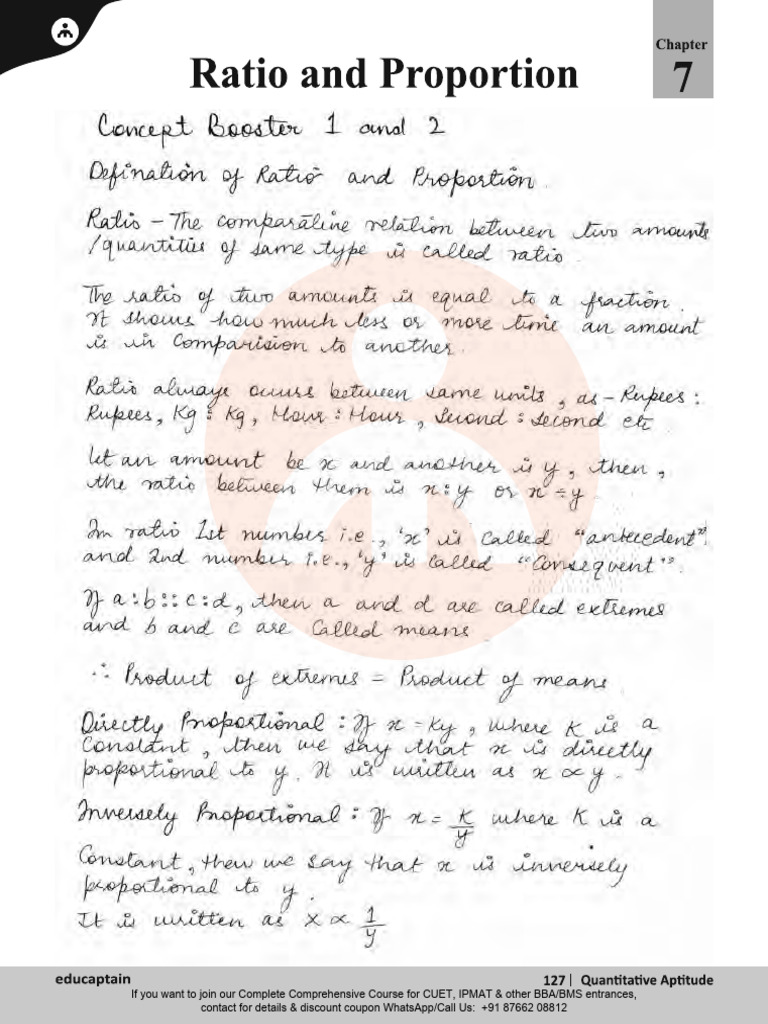 Chapter
7
Ratio and Proportion
Concept Booster 1 and 2
Defination of Ratio and Proportion.
Ratio – The comparative relation between two amounts
/quantities of same type is called ratio.
The ratio of two amounts is equal to a fraction.
It shows how much less or more time an amount
is in Comparision to another.
Ratio always occurs between same units, as – Rupees :
Rupees, Kg : Kg, Hour : Hour, Second : Second etc
Let an amount be x and another is y, then,
the ratio between them is x:y or x ÷ y
In ratio 1st number i.e., 'x' is called "antecedent"
and 2nd number i.e., 'y' is called "Consequent".
If a:b::c:d, then a and d are called extremes
and b and c are Called means.
∴ Product of extremes = Product of means.
Directly Proportional : If x = Ky, where K is a
Constant, then we say that x is directly
proportional to y. It is written as x ∝ y.
Inversely Proportional : If x = K/y where K is a
Constant, then we say that x is inversely
proportional to y.
It is written as x ∝ 1/y
educaptain
127 | Quantitative Aptitude
If you want to join our Complete Comprehensive Course for CUET, IPMAT & other BBA/BMS entrances,
contact for details & discount coupon WhatsApp/Call Us: +91 87662 08812